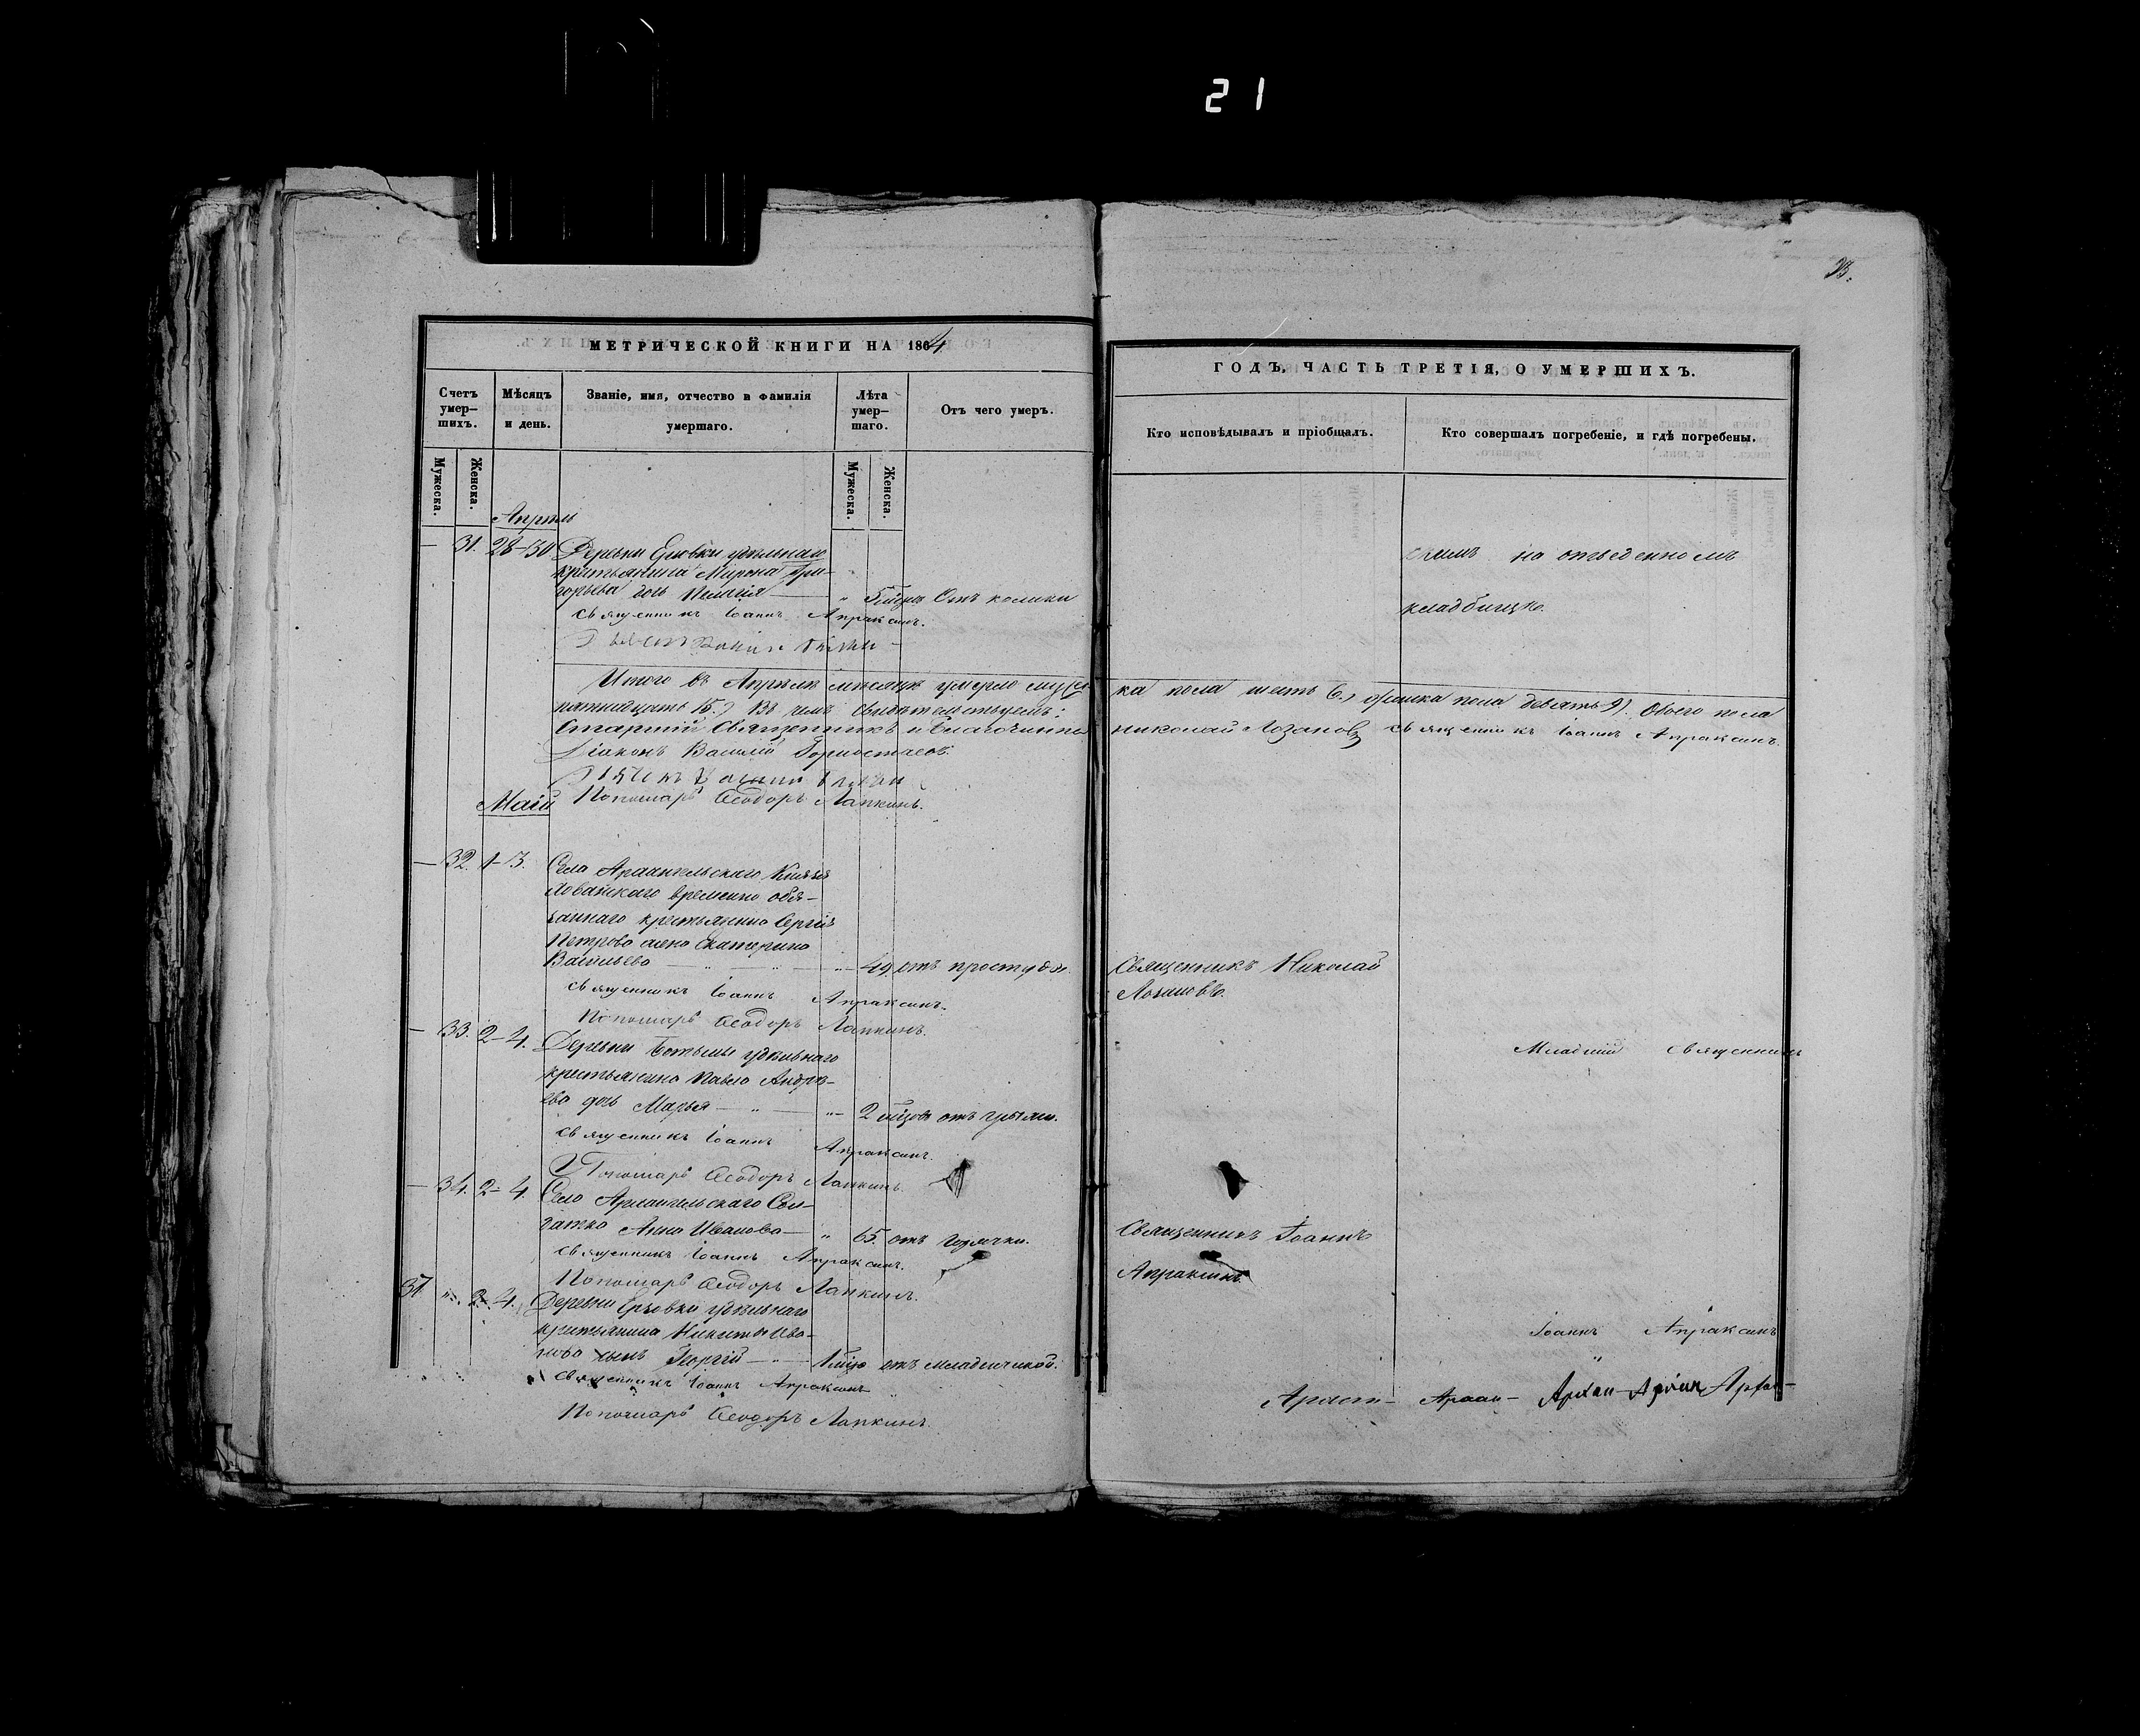 21
МЕТРИЧЕСКОЙ КНИГИ НА 1864
Счетъ умер-шихъ.
Мѣсяцъ и день.
Званіе, имя, отчество и фамилія умершаго.
Лѣта умер-шаго.
Отъ чего умеръ.
Мужеска.
Женска.
Мужеска.
Женска.
Апрѣль
31. 28-30 Деревни удѣльнаго
крестьянина Мирона Гри-
горьева дочь Пелагія " 5 мѣцъ Отъ колики
Священникъ Іоаннъ Апраксинъ.
Итого въ Апрѣлѣ мѣсяцѣ умерло мужес
пятнадцать 15.) Въ чемъ свидѣтельствуемъ:
Старшій Священникъ и Благочинный
Діаконъ Василій Горностаевъ.
Маій
Пономарь Ѳеодоръ Лапкинъ.
— 32. 1-3. Села Архангельскаго Князя
временно обя-
заннаго крестьянина Сергія
Петрова жена Екатерина
Васильева — " — 49 отъ простуды.
Священникъ Іоаннъ Апраксинъ.
Пономарь Ѳеодоръ Лапкинъ.
— 33. 2-4. Деревни Ботьмы удѣльнаго
крестьянина Павла Андре-
ева дочь Марья — " — 2 мѣцовъ отъ грыжи.
Священникъ Іоаннъ Апраксинъ.
Пономарь Ѳеодоръ Лапкинъ.
— 34. 2-4. Села Архангельскаго Сол-
датка Анна Иванова — " 65. отъ горячки.
Священникъ Іоаннъ Апраксинъ.
Пономарь Ѳеодоръ Лапкинъ.
37 ". 2-4. Деревни удѣльнаго
крестьянина Никиты Ива-
нова сынъ Георгій — " — 1 мѣцъ отъ младенческой.
Священникъ Іоаннъ Апраксинъ
Пономарь Ѳеодоръ Лапкинъ.
ГОДЪ, ЧАСТЬ ТРЕТІЯ, О УМЕРШИХЪ.
Кто исповѣдывалъ и пріобщалъ.
Кто совершалъ погребеніе, и гдѣ погребены.
на отведенномъ
кладбищѣ.
ка пола шесть 6.) женска пола девять 9). Обоего пола
Николай Лозановъ Священникъ Іоаннъ Апраксинъ.
Священникъ Николай
Лозановъ.
Младшій Священникъ
Священникъ Іоаннъ
Апраксинъ.
Іоаннъ Апраксинъ